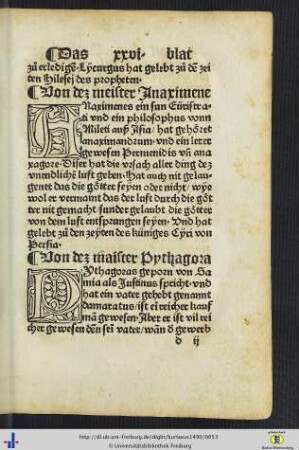 Das xxvi blat
zů erledigē. Lycurgus hat gelebt zů dē zei
ten Hilesei des propheten.
Von dez meister Anaximene
ANaximenes ein sun Euristra
ti vnd ein philosophus vonn
Mileti auß Asia/hat gehöret
anaximandrum/vnd ein lerer
gewesen Permenidis vn̄ ana
xagore. Diser hat die vrsach aller ding dez
vnendliche luft geben. Hat auch nit gelau-
genet das die götter seyen oder nicht/wye
wol er vermaint das der luft durch die göt
ter nit gemacht/sunder gelaubt die götter
von dem luft entsprungen seyen. Vnd hat
gelebt zů den zeyten des küniges Cyri von
Persia.
Von dez maister Pythagora
PYthagoras geporn von Sa
mia als Justinus spricht/vnd
hat ein vater gehebt genannt
damaratus/ist ei reicher kauf
mā gewesen. Aber er ist vil rei
cher gewesen dēn sei vater/wān d gewerb
d ij
http://dl.ub.uni-freiburg.de/diglit/burlaeus1490/0053
© Universitätsbibliothek Freiburg